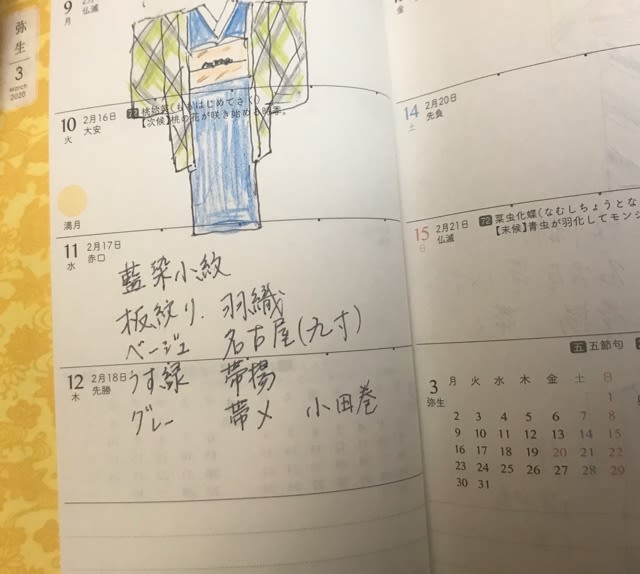 弥生
3
March
2020
9
月
仏滅
10
火
2月16日
大安
桃始笑(ももはじめてさく)
【次候】桃の花が咲き始める時季。
満月
11
水
2月17日
赤口
藍染小紋
板絞り. 羽織
ベージュ 名古屋(九寸)
12
木
2月18日
先勝
うす緑 帯揚
グレー 帯〆 小田巻
金
14
土
2月20日
先負
15
日
2月21日
仏滅
72 菜虫化蝶(なむしちょうとな
【末候】青虫が羽化してモンシ
五 五節句
3
弥生
月 火 水 木 金 土 日
1
2 3 4 5 6 7 8
9 10 11 12 13 14 15
16 17 18 19 20 21 22
23 24 25 26 27 28 29
30 31